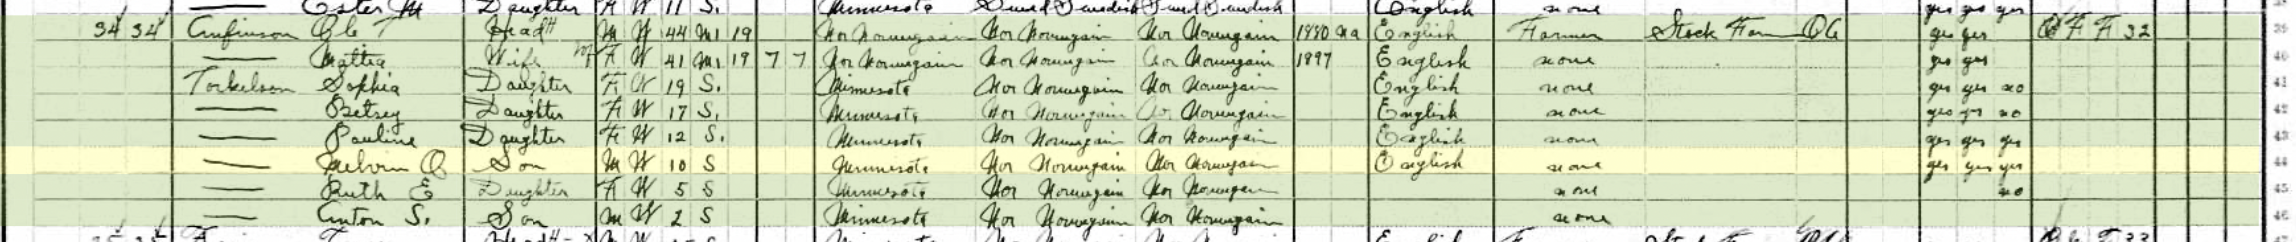 Ester M Daughter F W 11 S. Minnesota Swed Swedish Swed Swedish English none yes yes yes
34 34 Head M W 44 M1 19 Nor Norwegian Nor Norwegian Nor Norwegian 1880 Na English Farmer Stock Farm OA yes yes O F F 32
— Mattea Wife F W 41 M1 19 7 7 Nor Norwegian Nor Norwegian Nor Norwegian 1897 English none yes yes
Torkelson Sophia Daughter F W 19 S. Minnesota Nor Norwegian Nor Norwegian English none yes yes no
— Betsey Daughter F W 17 S. Minnesota Nor Norwegian Nor Norwegian English none yes yes no
— Pauline Daughter F W 12 S. Minnesota Nor Norwegian Nor Norwegian English none yes yes yes
— Melvin O Son M W 10 S Minnesota Nor Norwegian Nor Norwegian English none yes yes yes
— Ruth E Daughter F W 5 S Minnesota Nor Norwegian Nor Norwegian none no
— Anton S. Son M W 2 S Minnesota Nor Norwegian Nor Norwegian none